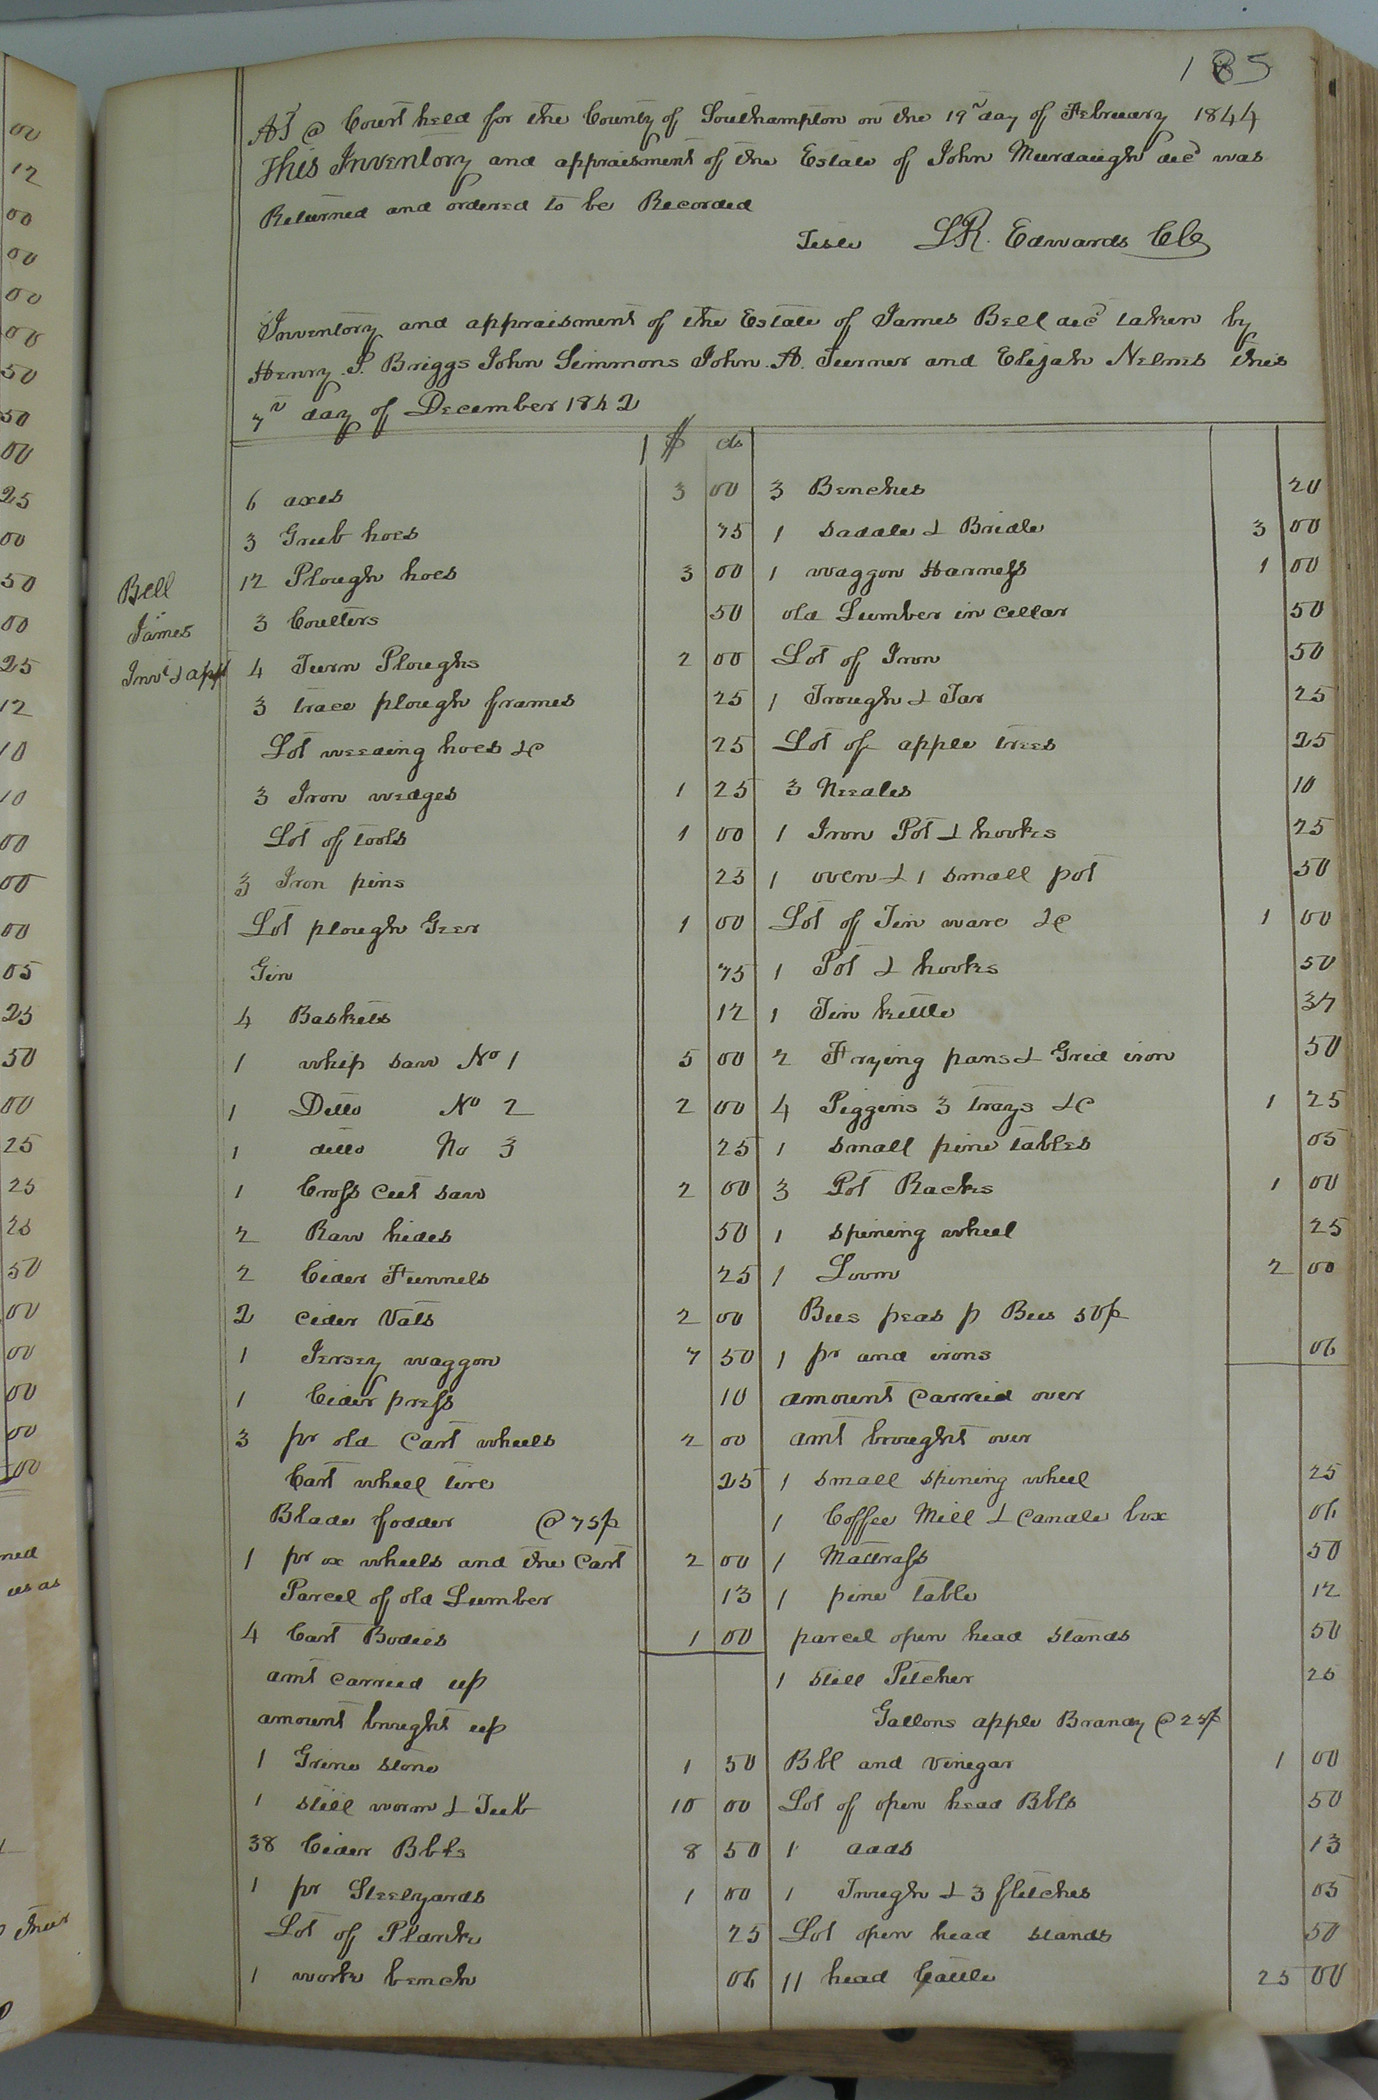 185
At a Court held for the County of Southampton on the 19th day of February 1844
This Inventory and appraisment of the Estate of John Murdaugh decd was
Returned and ordered to be Recorded
Teste LR. Edwards Clk
Inventory and appraisment of the Estate of James Bell decd taken by
Henry P. Briggs John Simmons John A. Turner and Elijah Nelms this
7th day of December 1842
Bell
James
Invt & appt
$ cts
6 axes 3 00
3 Grub hoes 75
12 Plough hoes 3 00
3 Coulters 50
4 Turn Ploughs 2 00
3 trace plough frames 25
Lot weeding hoes &c 25
3 Iron wedges 1 25
Lot of tools 1 00
3 Iron pins 25
Lot plough Geer 1 00
Gin 75
4 Baskets 12
1 whip saw No 1 5 00
1 Ditto No 2 2 00
1 ditto No 3 25
1 Cross Cut saw 2 00
2 Raw hides 50
2 Cider Funnels 25
2 cider Vats 2 00
1 Jersey waggon 7 50
1 Cider press 10
3 pr old Cart wheels 2 00
Cart wheel tire 25
Blade fodder @ 75p
1 pr ox wheels and the Cart 2 00
Parcel of old Lumber 13
4 Cart Bodies 1 00
amt carried up
amount brought up
1 Grine stone 1 50
1 still worm & Tub 10 00
38 Cider Bbls 8 50
1 pr Steelyards 1 00
Lot of Plank 25
1 work bench 06
3 Benches 20
1 saddle & Bridle 3 00
1 waggon Harness 1 00
old Lumber in cellar 50
Lot of Iron 50
1 Trough & Tar 25
Lot of apple trees 25
3 Needles 10
1 Iron Pot & hooks 25
1 oven & 1 small pot 50
Lot of Tin ware &c 1 00
1 Pot & hooks 50
1 Tin kettle 37
2 Frying pans & Grid iron 50
4 Piggins 3 trays &c 1 25
1 small pine tables 05
3 Pot Racks 1 00
1 spining wheel 25
1 Loom 2 00
Bus peas p Bus 50p
1 pr and irons 06
amount Carreid over
amt brought over
1 small spining wheel 25
1 Coffee Mill & Candle box 06
1 Mattrass 50
1 pine table 12
parcel open head stands 50
1 still Pitcher 25
Gallons apple Brandy @ 25p
Bbl and vinegar 1 00
Lot of open head Bbls 50
1 adds 13
1 Trough & 3 flitches 05
Lot open head stands 50
11 head Cattle 25 00